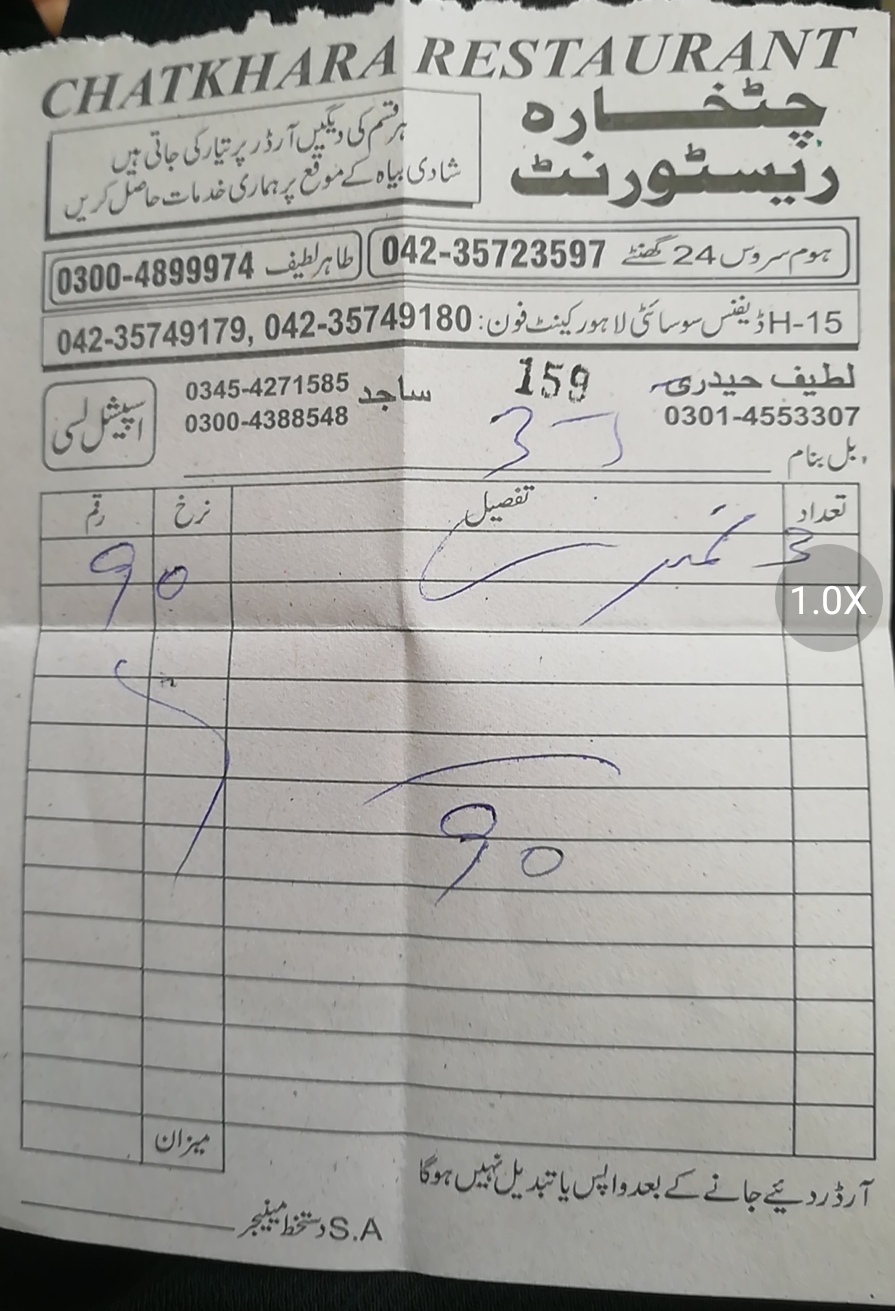 CHATKHARA RESTAURANT
چٹخارہ
ریسٹورنٹ
ہر قسم کی دیگیں آرڈر پر تیار کی جاتی ہیں
شادی بیاہ کے موقع پر ہماری خدمات حاصل کریں
ہوم سروس 24 گھنٹے 042-35723597
طاہر لطیف 0300-4899974
H-15 ڈیفنس سوسائٹی لاہور کینٹ فون: 042-35749179, 042-35749180
لطیف حیدری
0301-4553307
159
ساجد 0345-4271585
0300-4388548
اسپیشل لسی
بل بنام
3
تعداد تفصیل نرخ رقم
3 90
90
میزان
آرڈر دئیے جانے کے بعد واپس یا تبدیل نہیں ہوگا
S.A دستخط مینیجر
1.0X